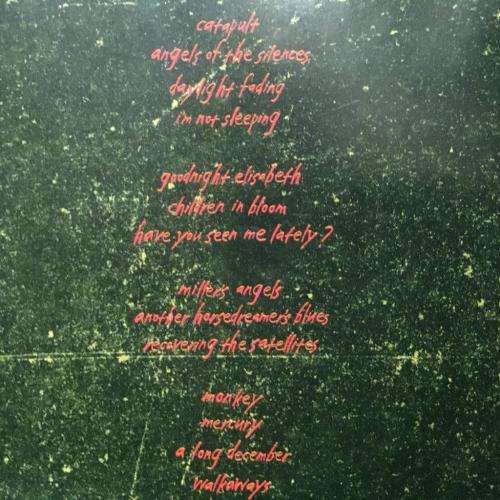 catapult
angels of the silences
daylight fading
i'm not sleeping
goodnight elisabeth
children in bloom
have you seen me lately?
miller's angels
another horsedreamer's blues
recovering the satellites
monkey
mercury
a long december
walkaways